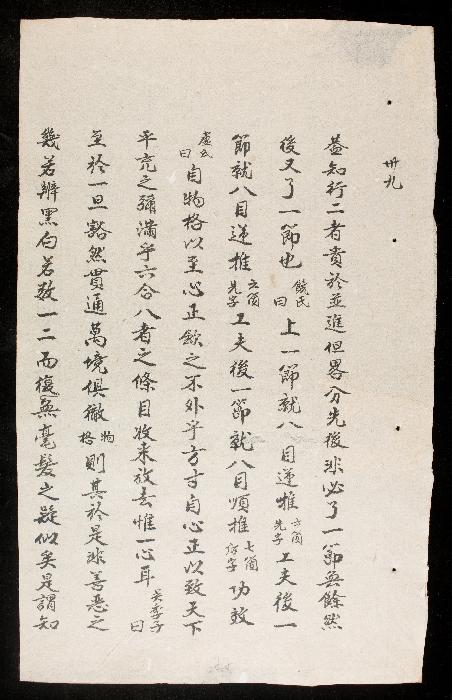 卅九
益知行二者貴於並進但畧分先後非必了一節無餘然
後又了一節也饒氏曰上一節就八目逆推六箇先字工夫後一
節就八目逆推六箇先字工夫後一節就八目順推七箇后字功效
盧氏曰自物格以至心正歛之不外乎方寸自心正以致天下
平充之彌滿乎六合八者之條目收来放去惟一心耳吳季子曰
至於一旦豁然貫通萬境俱徹物格則其於是非善惡之
幾若辨黑白若数一二而復無毫髮之疑似矣是謂知